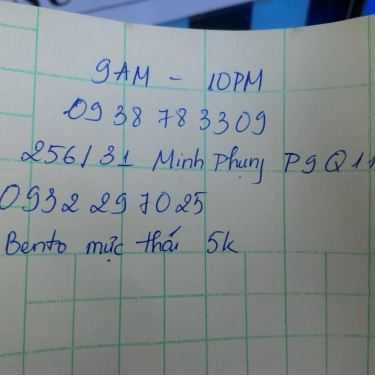 9AM - 10PM
0938 783309
256/31 Minh Phụng P9 Q11
0932 297025
Bento mực thái 5k